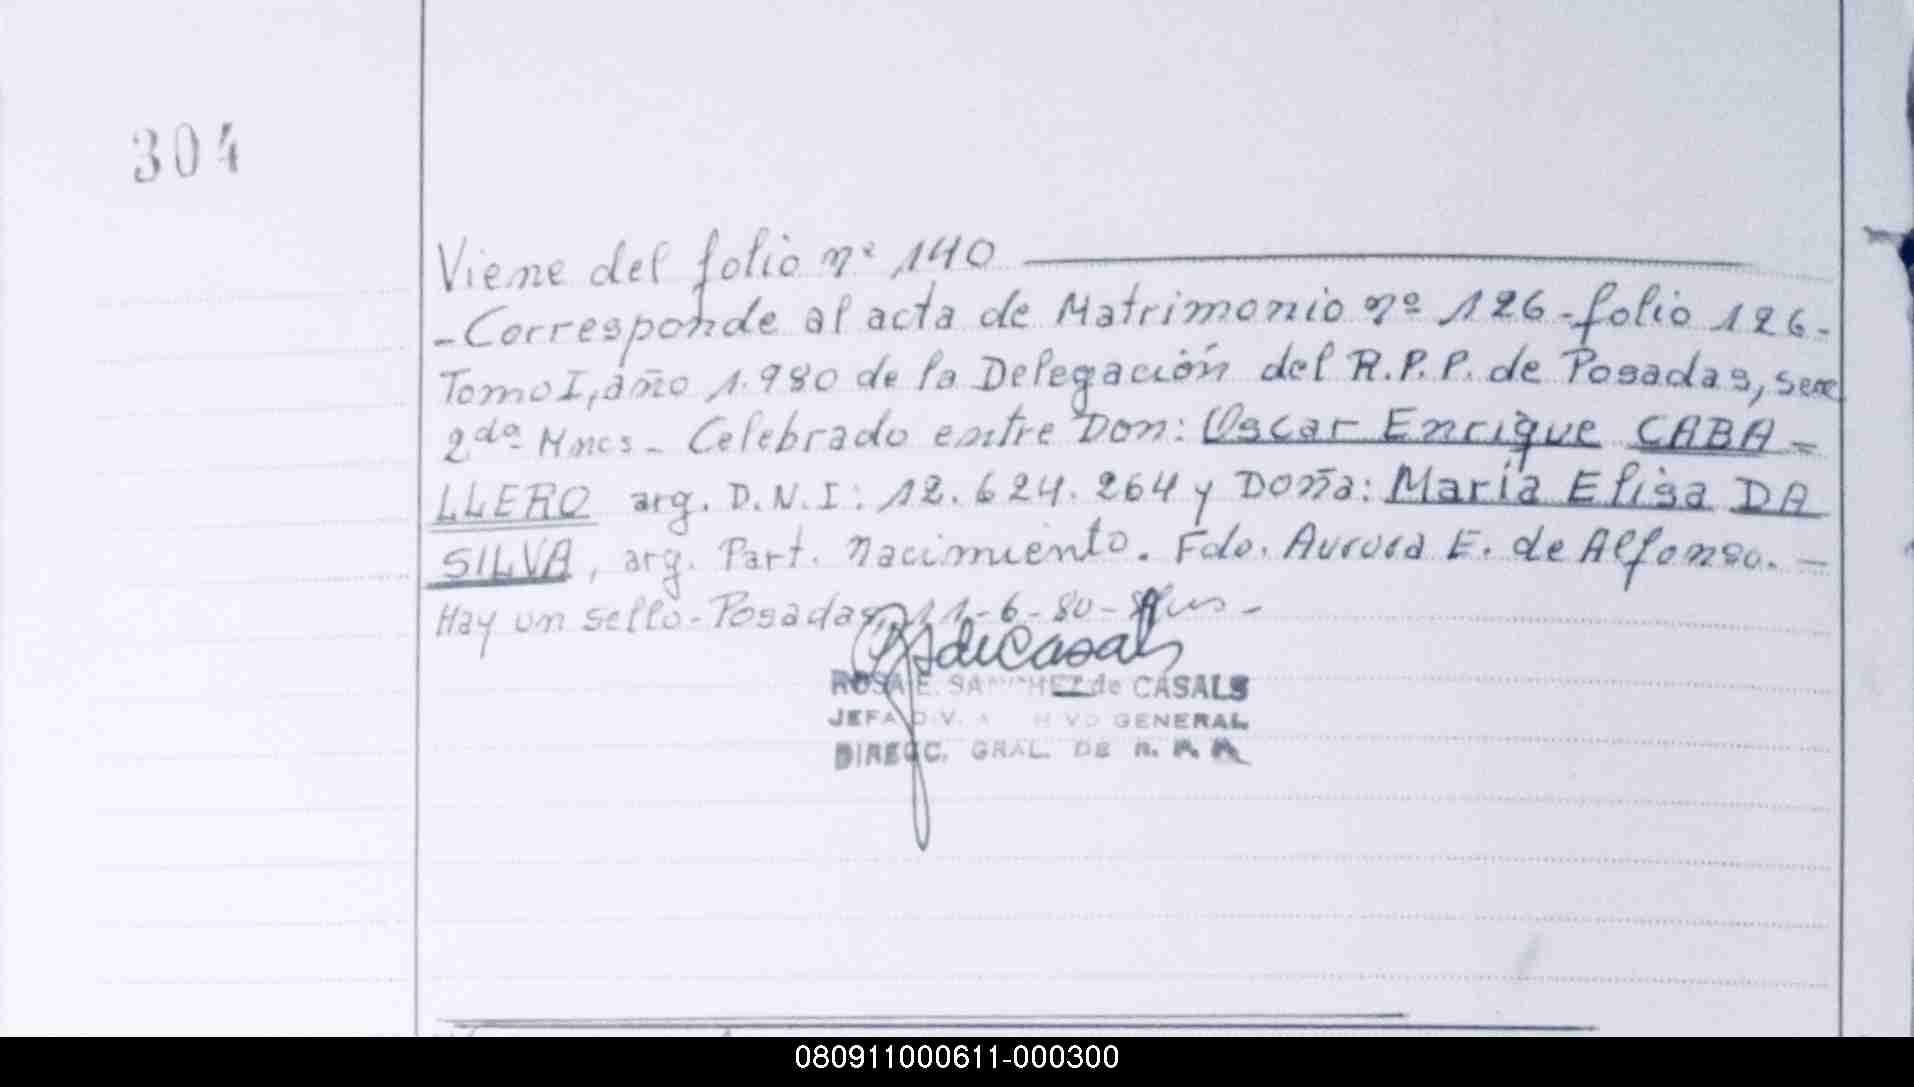 304
Viene del folio nº 140
- Corresponde al acta de Matrimonio nº 126 - folio 126 -
Tomo I, año 1.980 de la Delegación del R.P.P. de Posadas, secc
2da Mncs - Celebrado entre Don: Oscar Enrique CABA -
LLERO arg. D.N.I: 12.624.264 y Doña: María Elisa DA
SILVA, arg. Part. Nacimiento. Fdo. Aurora E. de Alfonso. -
Hay un sello - Posadas, 11-6-80 -
de Casals
ROSA E. SANCHEZ de CASALS
JEFA DIV. ARCHIVO GENERAL
DIRECC. GRAL. DE R.
080911000611-000300